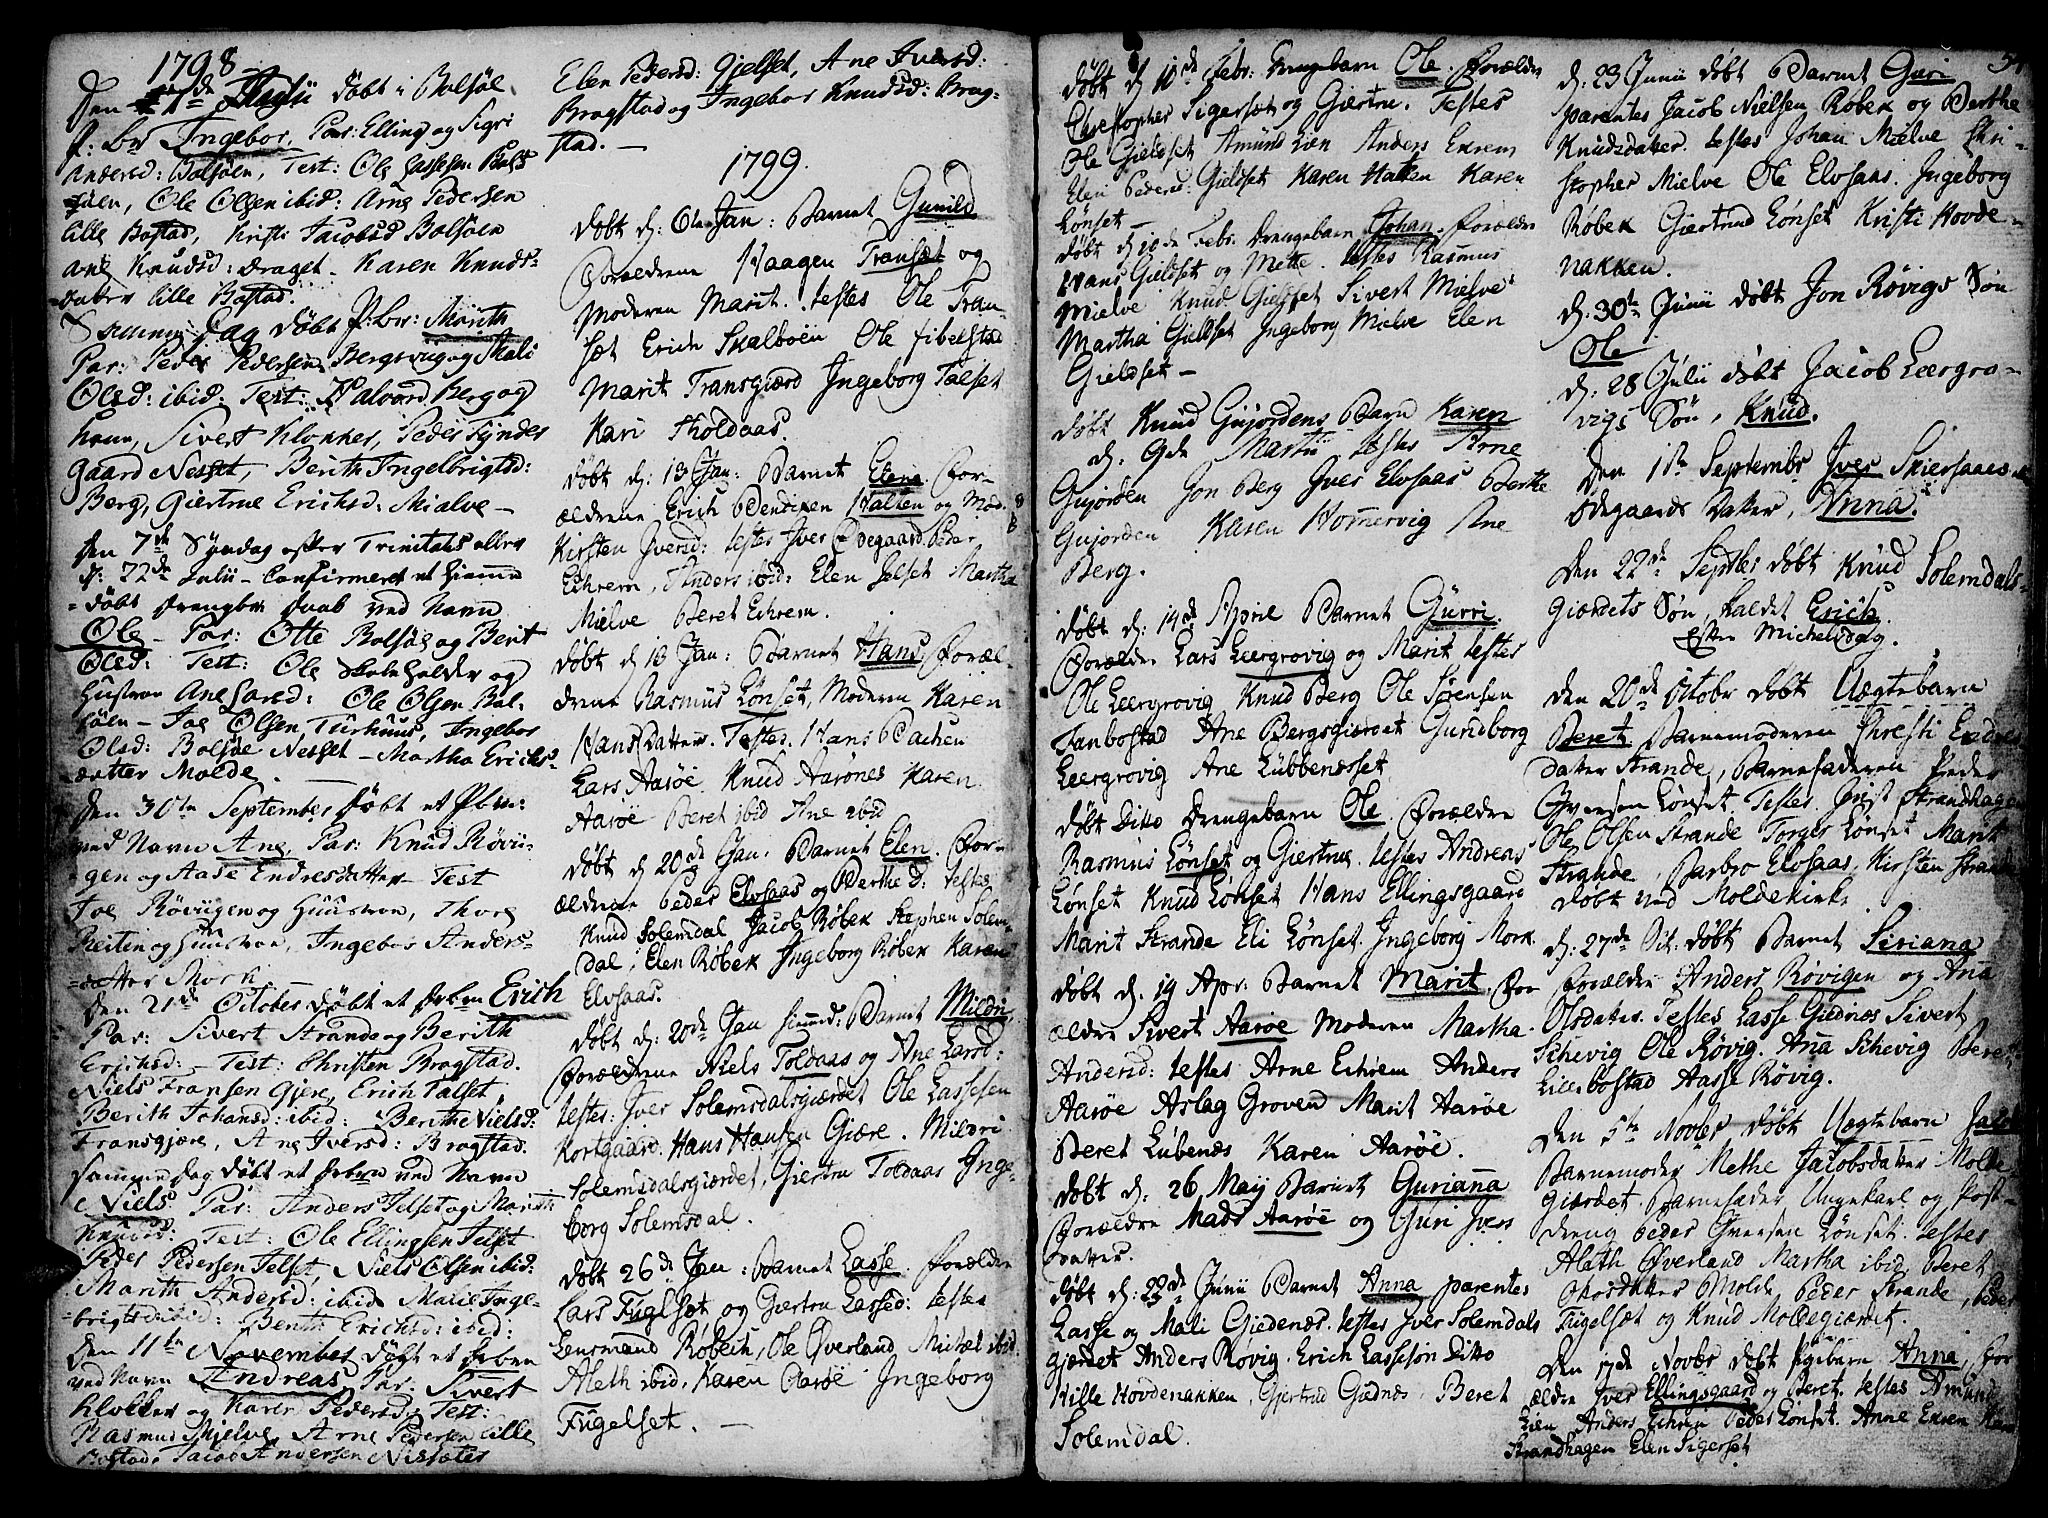 1798
Den 17de Julii døbt i Bolsøe
p: br Ingebor. Par: Elling og Sigri
Andersd: Bolsøen, Test: Ole Lassesen Bols
søen, Ole Olsen ibid: Arne Pedersen
Lille Bostad, Kristi Jacobsd Bolsøen
Ane Knudsd: Draget. Karen Knuds-
datter Lille Bostad.
Samme Dag døbt P:br: Marith
Par: Peder Pedersen Bergsvig og Mali
Olsd: ibid: Test: Halvord Berg og
Kone, Sivert Klokker, Peder Tynder
gaard Nesset, Berith Ingelbrigtsd:
Berg, Giertrue Erichsd: Mialve -
Den 7de Søndag efter Trinitatis eller
d: 22de Julii - Confirmeret et hiemme
døbt drengebr daab ved Navn
Ole - Par: Otte Bolsøe og Berit
Olsd: Test: Ole
Hustroe Ane Larsd: Ole Olsen Bol-
søen - Joe Olsen Turhuus, Ingebor
Olsd: Bolsøe Nesset - Martha Erichs-
datter Molde.
Den 30te September døbt et Pbrn:
ved Navn Ane, Par: Knud Røvi-
gen og Aase Endresdatter - Test
Joe Røvigen og Hustroe, Thore
Reiten og Hustroe, Ingebor Anders-
datter Mork.
Den 21de October døbt et drbrn Erich
Par: Sivert Strande og Berith
Erichsd: - Test: Christen Bragstad.
Niels Fransen Gjere, Erich Talset
Berith Johansd: ibid: Berithe Nielsd:
Fransgjøre, Ane Iversd: Bragstad.
Samme Dag døbt et drbrn ved Navn
Niels. Par: Anders Jelset og Marith
Knudsd: Test: Ole Ellingsen Jelset
Peder Pedersen Jelset, Niels Olsen ibid:
Marith Andersd: ibid: Marie Inge-
brigtsd ibid: Berith Erichsd: ibid:
Den 11te November døbt et drbrn
ved Navn Andreas Par: Sivert
Klokker og Karen Pedersd: Test:
Rasmus Mjelve, Arne Pedersen Lille
Bostad, Jacob Andersen
Elen Pedersd: Gjelset, Ane Iversd:
Bragstad og Ingebor Knudsd: Brag-
stad. -
1799.
Døbt d: 6te Jan: Barnet Gunild
Forældrene Haagen Transæt og
Moderen Marit. Testes Ole Tran-
sæt Erich Skalbøen Ole Fibelstad
Marit Transgiærd Ingeborg Talset
Kari Tholdaas.
Døbt d: 13 Jan: Barnet Elena For-
ældrene Erich Bentixen Hatten og Mod.
Kirsten Iversd: Testes Iver Ødegaard Peder
Echrem, Anders ibid: Elen Jelset Martha
Mielve Beret Echrem.
Døbt d 13 Jan: Barnet Hans, Foræl-
drene Rasmus Lønset, Moderen Karen
Hans Datter. Testes. Hans Bachen
Lars Aarøe Knud Aarønes Karen
Aarøe Beret ibid Ane ibid
Døbt d: 20de Jan: Barnet Elen. For-
ældrene Peder Elvsaas og Berthe d: testes
Knud Solemdal Jacob Røbek Stephen Solem-
dal, Elen Røbek Ingeborg Røbek Karen
Elvsaas.
Døbt d: 20de Jan Barnet Mildri
Forældrene Niels Toldaas og Ane Larsd:
testes: Iver Solemsdalsgiærdet Ole Lassesen
Kortgaard. Hans Hansen Giære. Mildri
Solemsdalsgiærdet, Giertru Toldaas Inge-
borg Solemsdal.
Døbt 26de Jan: Barnet Lasse. Forældre
Lars Fuglset og Giertru Lassed: testes
Lensmand Røbech, Ole Øverland, Michel ibid
Aleth ibid, Karen Aarøe Ingeborg
Fugelset. -
Døbt d 10de Febr: Drengebarn Ole. Forældre
Christopher Sigerset og Giertru. Testes
Ole Gieldset Amund Lien Anders Exrem
Elen Peders: Gieldset Karen Hatten Karen
Lønset -
Døbt d 10de Febr: Drengebarn Johan. Forældre
Hans Gieldset og Mette. testes Rasmus
Mielve Knud Gieldset Sivert Mielve
Martha Gieldset Ingeborg Mielve Elen
Gieldset -
Døbt Knud Gujordens Barn Karen
d. 9de Martii testes Arne
Gujorden Jon Berg Iver Elvsaas Berthe
Gujorden Karen Homervig Ane
Berg.
Døbt d: 14de April Barnet Gurri.
Forældre Lars Leergrovig og Marit testes
Ole Leergrovig Knud Berg Ole Sørensen
Tanbostad Ane Bergsgiærdet Gundborg
Leergrovig Ane Lübbenesset.
Døbt Ditto Drengebarn Ole. Forældre
Rasmus Lønset og Giertrue. testes Andreas
Lønset Knud Lønset Hans Ellingsgaard
Marit Strande Eli Lønset. Ingeborg Mork.
Døbt d. 19 Apr: Barnet Marit. For
ældre Sivert Aarøe Moderen Martha
Andersd: testes Arne Echrem Anders
Aarøe Aslag Groven Marit Aarøe
Beret Lübenes Karen Aarøe.
Døbt d: 26 Maij Barnet Guriana
Forældre Mads Aarøe og Guri Ivers
datter.
Døbt d: 23de Junii Barnet Anna parentes
Lasse og Mali Giedenæs. testes Iver Solemdals
gjærdet Anders Røvig. Erich Lassesøn Ditto
Hille Hovdenakken, Gjertrud Giednæs. Beret
Solemdal.
d. 23 Junii døbt Barnet Guri
parentes Jacob Nielsen Røbek og Berthe
Knudsdatter. testes Johan Mielve Chri-
stopher Mielve Ole Elvsaas. Ingeborg
Røbek Giertrud Lønset Kristi Hovde-
nakken.
d: 30te Junii døbt Jon Røvigs Søn
Ole
d: 28 Julii døbt Jacob Leergro-
vigs Søn, Knud.
Den 1ste Septembr Iver Skiersaas
Ødegaards Datter, Anna.
Den 22de Septbr døbt Knud Solemdals-
giærdets Søn, kaldet Erich.
Efter Michelsdag.
Den 20de Octobr døbt Uægtebarn
Beret Barnemoderen Christi Endres
datter Strande, Barnefaderen Peder
Iversen Lønset Testes. Strandhagen
Ole Olsen Strande Torger Lønset Marit
Strande, Barbro Elvsaas, Kirsten Strande
døbt ved Moldekirke.
d: 27de Oct: døbt Barnet Siriana
forældre Anders Røvigen og Ana
Olsdatter. Testes Lasse Giednæs Sivert
Schevig Ole Røvig. Ana Schevig Beret
Lillebostad Aasse Røvig.
Den 5te Novbr døbt Uægtebarn Jacob
Barnemoder Methe Jacobsdatter Molde
giærdet. Barnefader Ungekarl og Post-
dreng Peder Iversen Lønset. testes
Aleth Øverland Martha ibid, Beret
Molde Peder Strande, Peder
Fugelsæt og Knud Moldegiærdet.
Den 17de Novbr døbt Pigebarn Anna, For
ældre Iver Ellingsgaard og Beret. testes Amund
Lien Anders Echrem Peder Lønset. Anne Exrem Karen
Strandhagen Elen Sigerset